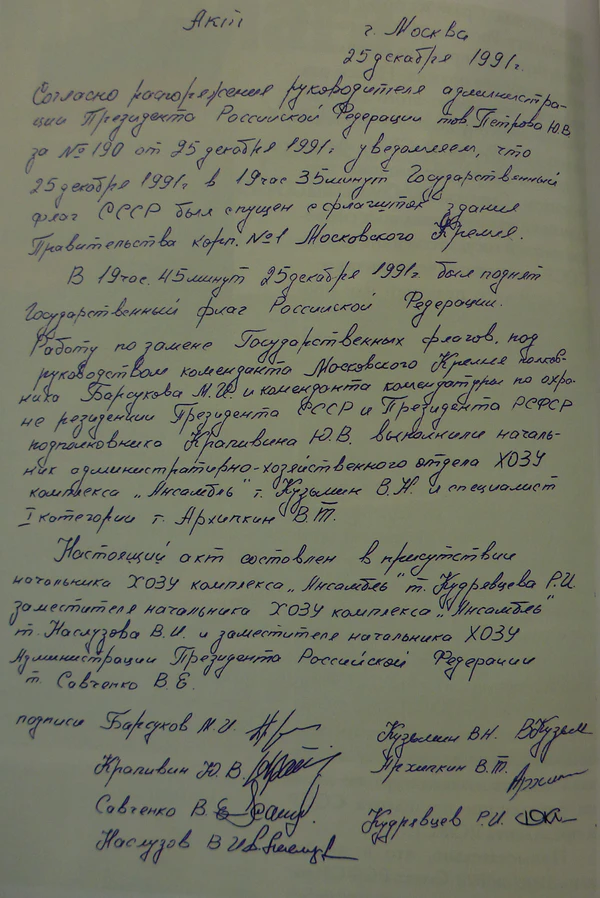 Акт г. Москва
25 декабря 1991г.
Согласно распоряжения руководителя администра-
ции Президента Российской Федерации тов. Петрова Ю.В.
за №190 от 25 декабря 1991г уведомляем, что
25 декабря 1991г в 19 час 35 минут Государственный
флаг СССР был спущен с флагшток здания
Правительства корп. №1 Московского Кремля.
В 19 час. 45 минут 25 декабря 1991г. был поднят
Государственный флаг Российской Федерации.
Работу по замене Государственных флагов, под
руководством коменданта Московского Кремля полков-
ника Барсукова М.И. и коменданта комендатуры по охра-
не резиденции Президента СССР и Президента РСФСР
подполковника Крапивина Ю.В. выполнили началь-
ник административно-хозяйственного отдела ХОЗУ
комплекса „Ансамбль" т. Кузьмин В.Н. и специалист
I категории т. Архипкин В.Т.
Настоящий акт составлен в присутствие
начальника ХОЗУ комплекса „Ансамбль" т. Кудрявцева Р.И.
заместителя начальника ХОЗУ комплекса „Ансамбль"
т. Наслузова В.И. и заместителя начальника ХОЗУ
Администрации Президента Российской Федерации
т. Савченко В.Е.
подписи Барсуков М.И. Кузьмин В.Н.
Крапивин Ю.В. Архипкин В.Т.
Савченко В.Е.
Кудрявцев Р.И.
Наслузов В.И.